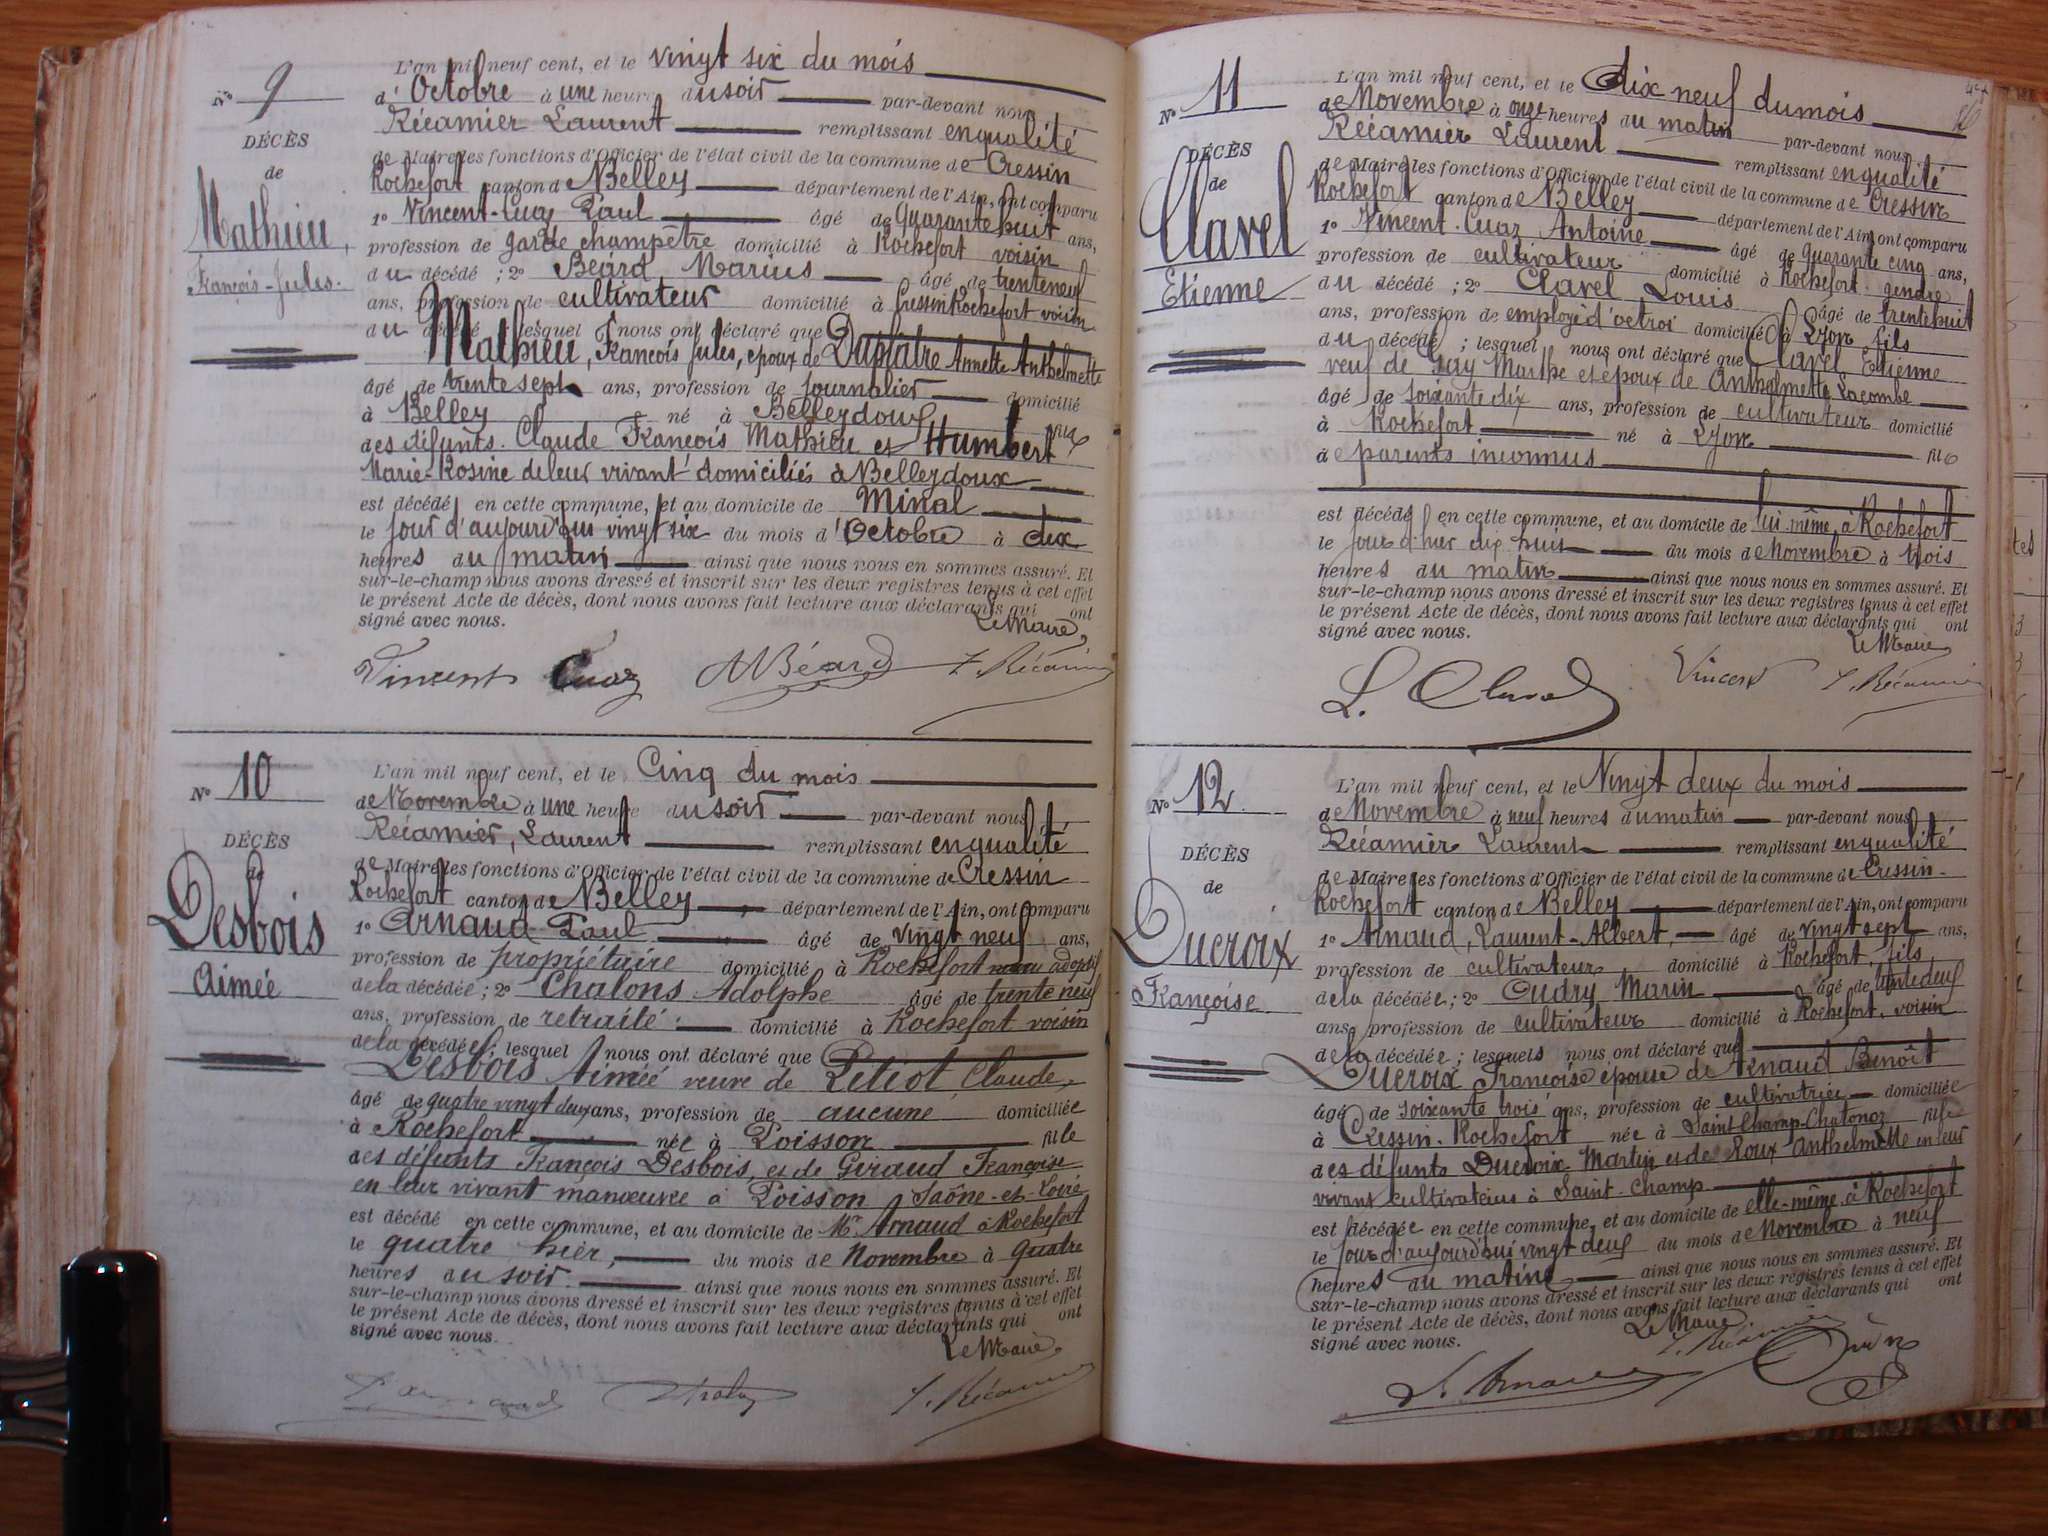 N° 9
DÉCÈS
de
Mathieu,
François-Jules.
L'an mil neuf cent, et le vingt six du mois
d'Octobre à une heure du soir par-devant nous
Récamier Laurent remplissant en qualité
de Maire les fonctions d'Officier de l'état civil de la commune de Cressin
Rochefort canton de Belley département de l'Ain, ont comparu
1° Vincent-Cuaz Paul âgé de quarante huit ans,
profession de garde champêtre domicilié à Rochefort voisin
du décédé ; 2° Béard, Marius âgé de trente neuf
ans, profession de cultivateur domicilié à Cressin Rochefort voisin
du décédé lesquel nous ont déclaré que
Mathieu, François Jules, époux de Duplatre Annette Anthelmette
âgé de trente sept ans, profession de journalier domicilié
à Belley né à Belleydoux fils
des défunts Claude François Mathieu et Humbert
Marie-Rosine de leur vivant domiciliés à Belleydoux
est décédé en cette commune, et au domicile de Minal
le jour d'aujourd'hui vingt six du mois d'Octobre à dix
heures du matin ainsi que nous nous en sommes assuré. Et
sur-le-champ nous avons dressé et inscrit sur les deux registres tenus à cet effet
le présent Acte de décès, dont nous avons fait lecture aux déclarants qui ont
signé avec nous. Le Maire,
Vincent Cuaz MBéard L. Récamier
N° 10
DÉCÈS
de
Desbois
Aimée
L'an mil neuf cent, et le Cinq du mois
de Novembre à une heure du soir par-devant nous
Récamier, Laurent remplissant en qualité
de Maire les fonctions d'Officier de l'état civil de la commune de Cressin
Rochefort canton de Belley département de l'Ain, ont comparu
1° Arnaud Paul âgé de vingt neuf ans,
profession de propriétaire domicilié à Rochefort adoptif
de la décédée ; 2° Chalons Adolphe âgé de trente neuf
ans, profession de retraité domicilié à Rochefort voisin
de la décédée ; lesquel nous ont déclaré que
Desbois Aimée veuve de Petiot Claude,
âgé de quatre vingt deux ans, profession de aucune domiciliée
à Rochefort née à Poisson fille
des défunts François Desbois, et de Giraud Françoise
en leur vivant manœuvre à Poisson Saône-et-Loire
est décédé en cette commune, et au domicile de Mr Arnaud à Rochefort
le quatre hier, du mois de Novembre à quatre
heures du soir. ainsi que nous nous en sommes assuré. Et
sur-le-champ nous avons dressé et inscrit sur les deux registres tenus à cet effet
le présent Acte de décès, dont nous avons fait lecture aux déclarants qui ont
signé avec nous. Le Maire,
L. Récamier
N° 11
DÉCÈS
de
Clavel
Etienne
L'an mil neuf cent, et le dix neuf du mois
de Novembre à onze heures du matin par-devant nous
Récamier Laurent remplissant en qualité
de Maire les fonctions d'Officier de l'état civil de la commune de Cressin
Rochefort canton de Belley département de l'Ain, ont comparu
1° Vincent-Cuaz Antoine âgé de quarante cinq ans,
profession de cultivateur domicilié à Rochefort gendre
du décédé ; 2° Clavel Louis âgé de trente huit
ans, profession de employé d'octroi domicilié à Lyon fils
du décédé ; lesquel nous ont déclaré que Clavel Etienne
veuf de Guy Marthe et époux de Anthelmette Lacombe
âgé de soixante dix ans, profession de cultivateur domicilié
à Rochefort né à Lyon fils
de parents inconnus
est décédé en cette commune, et au domicile de lui-même, à Rochefort
le jour d'hier dix huit du mois de Novembre à trois
heures du matin ainsi que nous nous en sommes assuré. Et
sur-le-champ nous avons dressé et inscrit sur les deux registres tenus à cet effet
le présent Acte de décès, dont nous avons fait lecture aux déclarants qui ont
signé avec nous. Le Maire
L. Clavel Vincent L. Récamier
N° 12.
DÉCÈS
de
Ducroix
Françoise.
L'an mil neuf cent, et le Vingt deux du mois
de Novembre à neuf heures du matin par-devant nous
Récamier Laurent remplissant en qualité
de Maire les fonctions d'Officier de l'état civil de la commune de Cressin-
Rochefort canton de Belley département de l'Ain, ont comparu
1° Arnaud, Laurent-Albert, âgé de vingt sept ans,
profession de cultivateur domicilié à Rochefort, fils
de la décédée ; 2° Oudry Marin âgé de
ans, profession de cultivateur domicilié à Rochefort, voisin
de la décédée ; lesquels nous ont déclaré que
Ducroix Françoise épouse de Arnaud Benoît
âgé de soixante trois ans, profession de cultivatrice domiciliée
à Cressin-Rochefort née à Saint-Champ-Chatonoz fille
des défunts Ducroix Martin et de Roux Anthelmette en leur
vivant cultivateurs à Saint-Champ
est décédée en cette commune, et au domicile de elle-même, à Rochefort
le jour d'aujourd'hui vingt deux du mois de Novembre à neuf
heures du matin ainsi que nous nous en sommes assuré. Et
sur-le-champ nous avons dressé et inscrit sur les deux registres tenus à cet effet
le présent Acte de décès, dont nous avons fait lecture aux déclarants qui ont
signé avec nous. Le Maire
L. Récamier
L. Arnaud